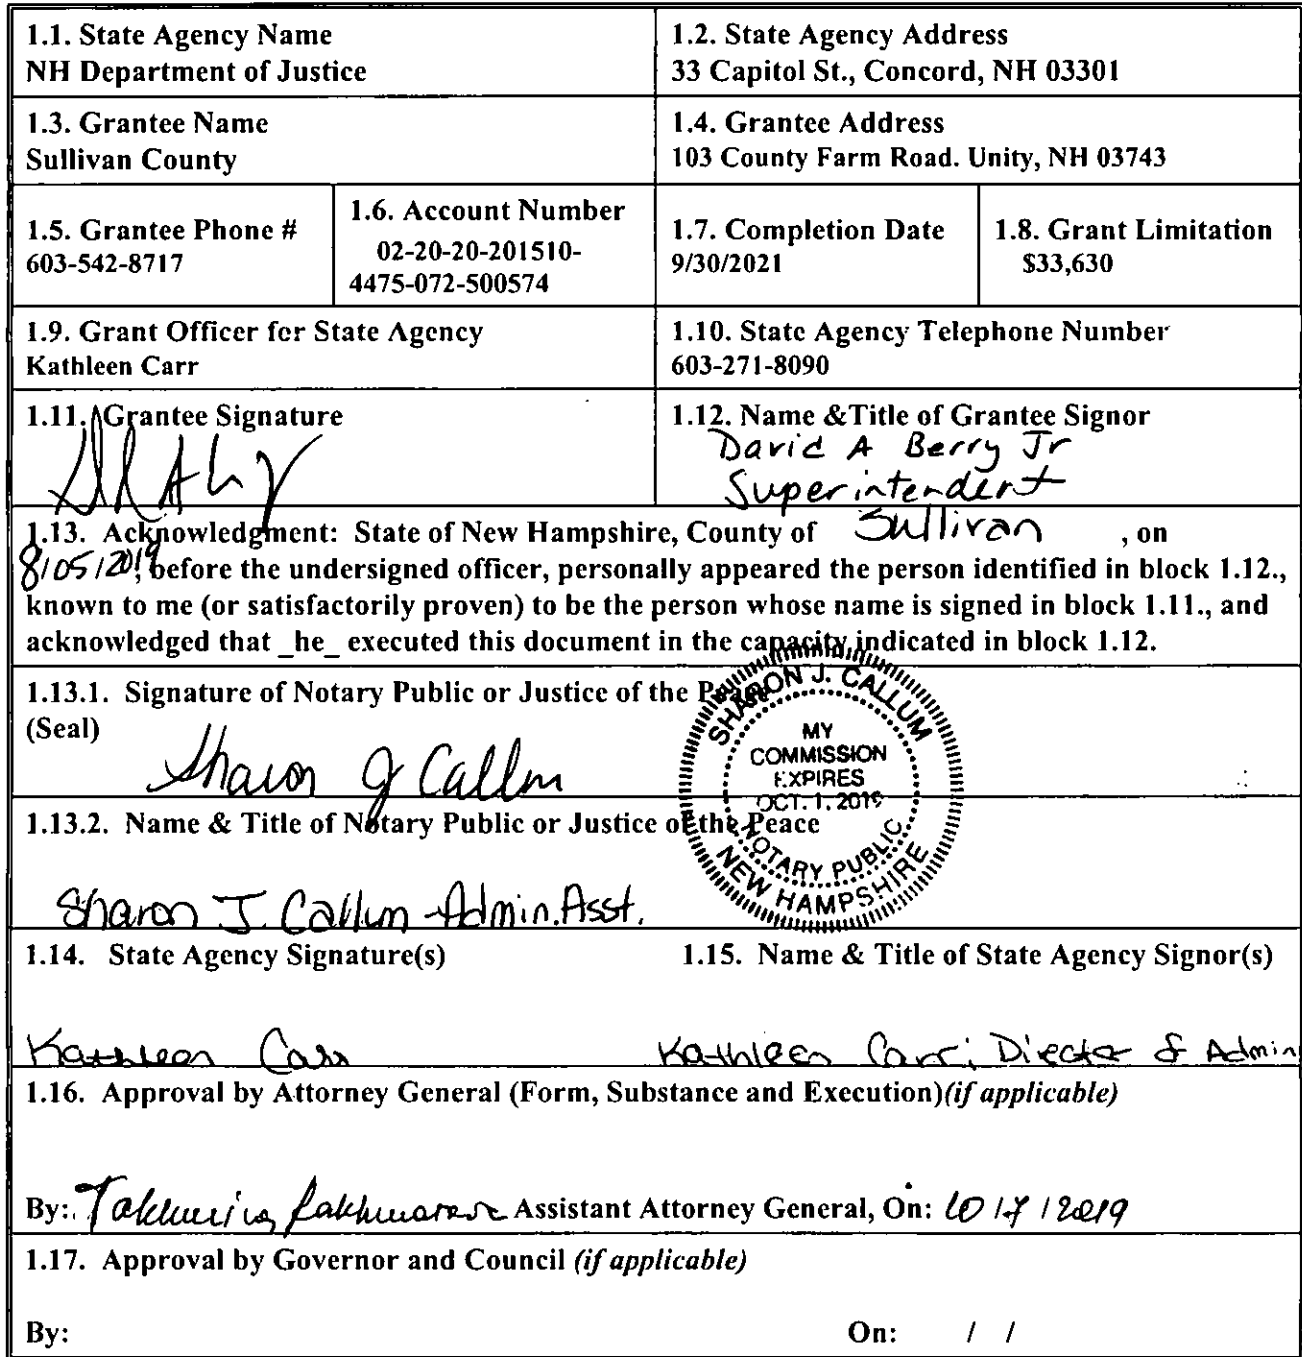 1.1. State Agency Name
NH Department of Justice
1.2. State Agency Address
33 Capitol St., Concord, NH 03301
1.3. Grantee Name
Sullivan County
1.4. Grantee Address
103 County Farm Road. Unity, NH 03743
1.5. Grantee Phone #
603-542-8717
1.6. Account Number
02-20-20-201510-
4475-072-500574
1.7. Completion Date
9/30/2021
1.8. Grant Limitation
$33,630
1.9. Grant Officer for State Agency
Kathleen Carr
1.10. State Agency Telephone Number
603-271-8090
1.11. Grantee Signature
1.12. Name &Title of Grantee Signor
David A Berry Jr
Superintendent
1.13. Acknowledgment: State of New Hampshire, County of Sullivan , on
8/05/2019, before the undersigned officer, personally appeared the person identified in block 1.12.,
known to me (or satisfactorily proven) to be the person whose name is signed in block 1.11., and
acknowledged that _he_ executed this document in the capacity indicated in block 1.12.
1.13.1. Signature of Notary Public or Justice of the Peace
(Seal)
Sharon J Callum
SHARON J. CALLUM
MY
COMMISSION
EXPIRES
OCT. 1, 2019
NOTARY PUBLIC
NEW HAMPSHIRE
1.13.2. Name & Title of Notary Public or Justice of the Peace
Sharon J. Callum-Admin.Asst.
1.14. State Agency Signature(s)
1.15. Name & Title of State Agency Signor(s)
Kathleen Carr
Kathleen Carr, Director of Admin
1.16. Approval by Attorney General (Form, Substance and Execution)(if applicable)
By: Assistant Attorney General, On: 10/7/2019
1.17. Approval by Governor and Council (if applicable)
By: On: / /